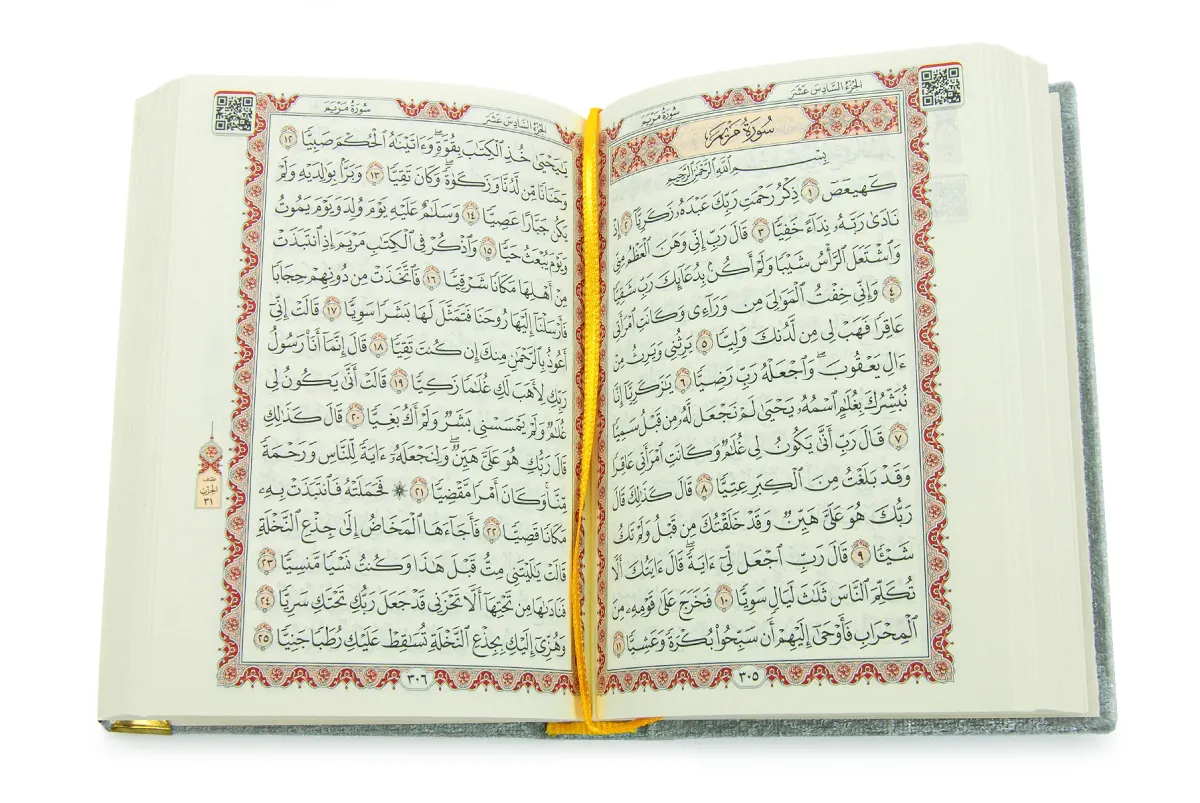 سُورَةُ مَرْيَمَ
الجُزْءُ السَّادِسَ عَشَرَ
سُورَةُ مَرْيَمَ
بِسْمِ اللَّهِ الرَّحْمَٰنِ الرَّحِيمِ
كٓهيعٓصٓ ١ ذِكْرُ رَحْمَتِ رَبِّكَ عَبْدَهُۥ زَكَرِيَّآ ٢ إِذْ
نَادَىٰ رَبَّهُۥ نِدَآءً خَفِيًّا ٣ قَالَ رَبِّ إِنِّى وَهَنَ ٱلْعَظْمُ مِنِّى
وَٱشْتَعَلَ ٱلرَّأْسُ شَيْبًا وَلَمْ أَكُنۢ بِدُعَآئِكَ رَبِّ شَقِيًّا
٤ وَإِنِّى خِفْتُ ٱلْمَوَٰلِىَ مِن وَرَآءِى وَكَانَتِ ٱمْرَأَتِى
عَاقِرًا فَهَبْ لِى مِن لَّدُنكَ وَلِيًّا ٥ يَرِثُنِى وَيَرِثُ مِنْ
ءَالِ يَعْقُوبَ ۖ وَٱجْعَلْهُ رَبِّ رَضِيًّا ٦ يَٰزَكَرِيَّآ إِنَّا
نُبَشِّرُكَ بِغُلَٰمٍ ٱسْمُهُۥ يَحْيَىٰ لَمْ نَجْعَل لَّهُۥ مِن قَبْلُ سَمِيًّا
٧ قَالَ رَبِّ أَنَّىٰ يَكُونُ لِى غُلَٰمٌ وَكَانَتِ ٱمْرَأَتِى عَاقِرًا
وَقَدْ بَلَغْتُ مِنَ ٱلْكِبَرِ عِتِيًّا ٨ قَالَ كَذَٰلِكَ قَالَ
رَبُّكَ هُوَ عَلَىَّ هَيِّنٌ وَقَدْ خَلَقْتُكَ مِن قَبْلُ وَلَمْ تَكُ
شَيْـًٔا ٩ قَالَ رَبِّ ٱجْعَل لِّىٓ ءَايَةً ۚ قَالَ ءَايَتُكَ أَلَّا
تُكَلِّمَ ٱلنَّاسَ ثَلَٰثَ لَيَالٍ سَوِيًّا ١٠ فَخَرَجَ عَلَىٰ قَوْمِهِۦ مِنَ
ٱلْمِحْرَابِ فَأَوْحَىٰٓ إِلَيْهِمْ أَن سَبِّحُوا۟ بُكْرَةً وَعَشِيًّا ١١
٣٠٥
الجُزْءُ السَّادِسَ عَشَرَ
سُورَةُ مَرْيَمَ
يَٰيَحْيَىٰ خُذِ ٱلْكِتَٰبَ بِقُوَّةٍ ۖ وَءَاتَيْنَٰهُ ٱلْحُكْمَ صَبِيًّا ١٢
وَحَنَانًا مِّن لَّدُنَّا وَزَكَوٰةً ۖ وَكَانَ تَقِيًّا ١٣ وَبَرًّۢا بِوَٰلِدَيْهِ وَلَمْ
يَكُن جَبَّارًا عَصِيًّا ١٤ وَسَلَٰمٌ عَلَيْهِ يَوْمَ وُلِدَ وَيَوْمَ يَمُوتُ
وَيَوْمَ يُبْعَثُ حَيًّا ١٥ وَٱذْكُرْ فِى ٱلْكِتَٰبِ مَرْيَمَ إِذِ ٱنتَبَذَتْ
مِنْ أَهْلِهَا مَكَانًا شَرْقِيًّا ١٦ فَٱتَّخَذَتْ مِن دُونِهِمْ حِجَابًا
فَأَرْسَلْنَآ إِلَيْهَا رُوحَنَا فَتَمَثَّلَ لَهَا بَشَرًا سَوِيًّا ١٧ قَالَتْ إِنِّىٓ
أَعُوذُ بِٱلرَّحْمَٰنِ مِنكَ إِن كُنتَ تَقِيًّا ١٨ قَالَ إِنَّمَآ أَنَا۠ رَسُولُ
رَبِّكِ لِأَهَبَ لَكِ غُلَٰمًا زَكِيًّا ١٩ قَالَتْ أَنَّىٰ يَكُونُ لِى
غُلَٰمٌ وَلَمْ يَمْسَسْنِى بَشَرٌ وَلَمْ أَكُ بَغِيًّا ٢٠ قَالَ كَذَٰلِكِ
قَالَ رَبُّكِ هُوَ عَلَىَّ هَيِّنٌ ۖ وَلِنَجْعَلَهُۥٓ ءَايَةً لِّلنَّاسِ وَرَحْمَةً
مِّنَّا ۚ وَكَانَ أَمْرًا مَّقْضِيًّا ٢١ ۞ فَحَمَلَتْهُ فَٱنتَبَذَتْ بِهِۦ
مَكَانًا قَصِيًّا ٢٢ فَأَجَآءَهَا ٱلْمَخَاضُ إِلَىٰ جِذْعِ ٱلنَّخْلَةِ
قَالَتْ يَٰلَيْتَنِى مِتُّ قَبْلَ هَٰذَا وَكُنتُ نَسْيًا مَّنسِيًّا ٢٣
فَنَادَىٰهَا مِن تَحْتِهَآ أَلَّا تَحْزَنِى قَدْ جَعَلَ رَبُّكِ تَحْتَكِ سَرِيًّا ٢٤
وَهُزِّىٓ إِلَيْكِ بِجِذْعِ ٱلنَّخْلَةِ تُسَٰقِطْ عَلَيْكِ رُطَبًا جَنِيًّا ٢٥
نصف
الحزب
٣١
٣٠٦